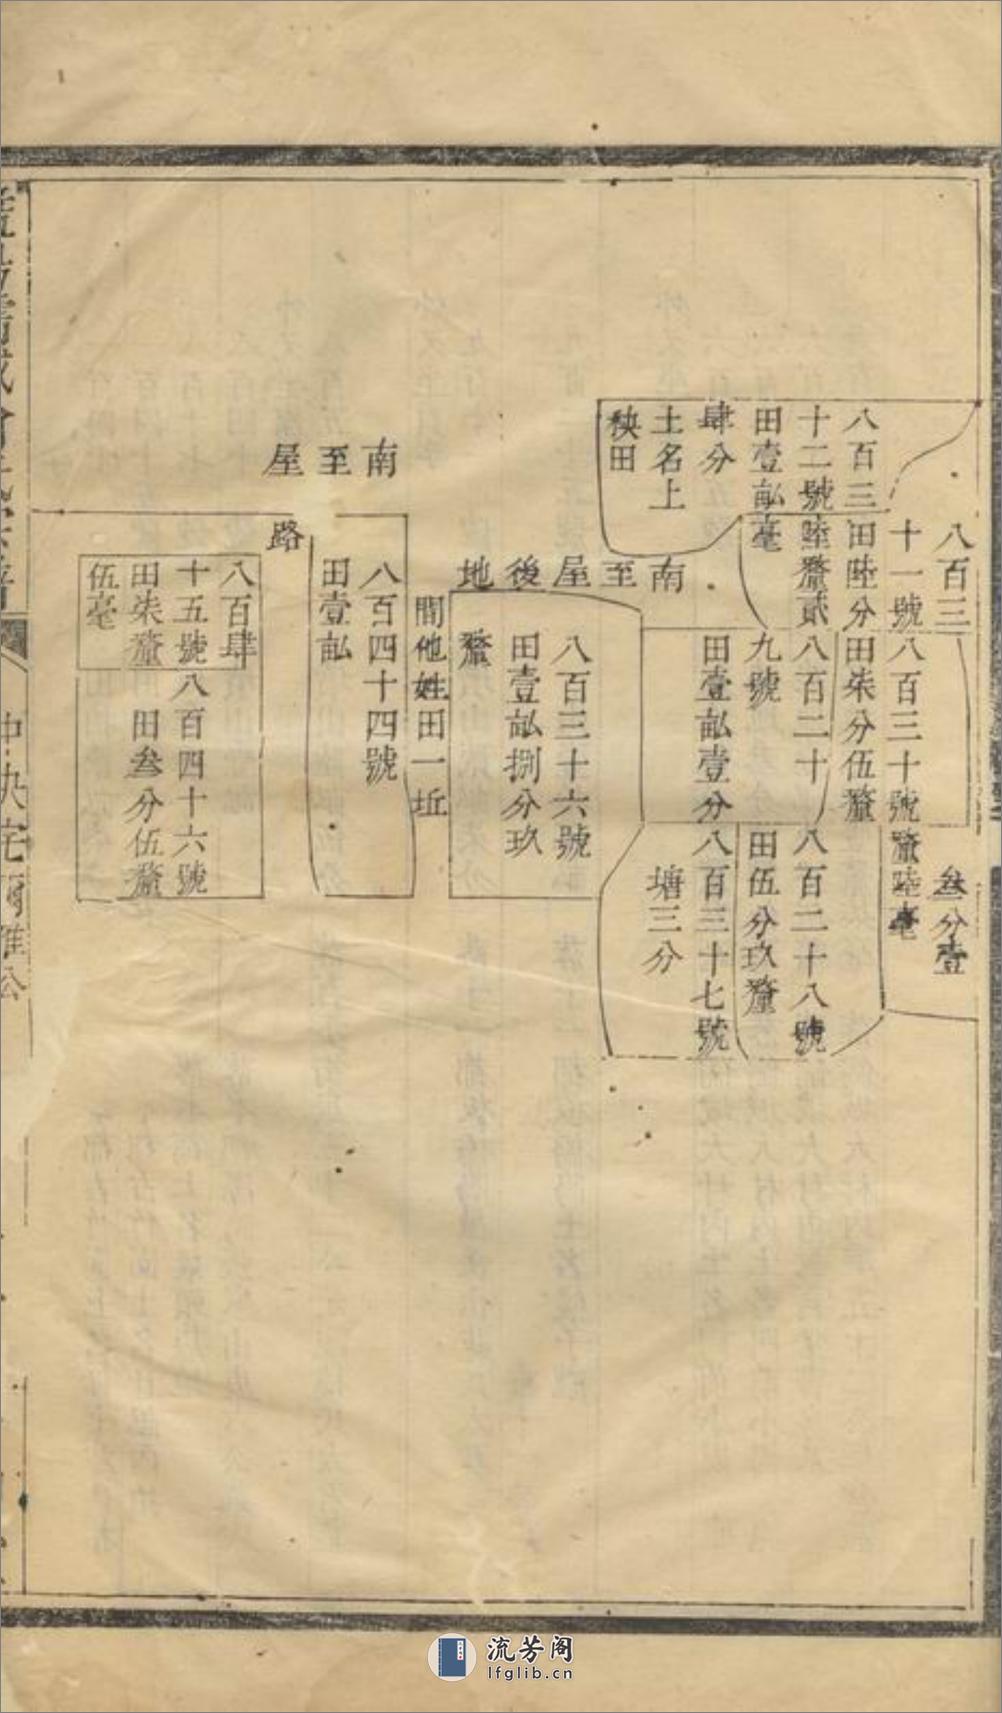 八百三
十二號
田壹畝
肆分
土名上
秧田
八百三
十一號
田陸分
陸釐貳
毫
南至屋後地
八百三十號
田柒分伍釐
叁分壹
釐陸毫
八百二十
九號
田壹畝壹分
八百二十八號
田伍分玖釐
八百三十七號
塘三分
八百三十六號
田壹畝捌分玖
釐
間他姓田一坵
南至屋
路
八百四十四號
田壹畝
八百肆
十五號
田柒釐
伍毫
八百四十六號
田叁分伍釐
中央宅
雅公
流芳阁
lfglib.cn